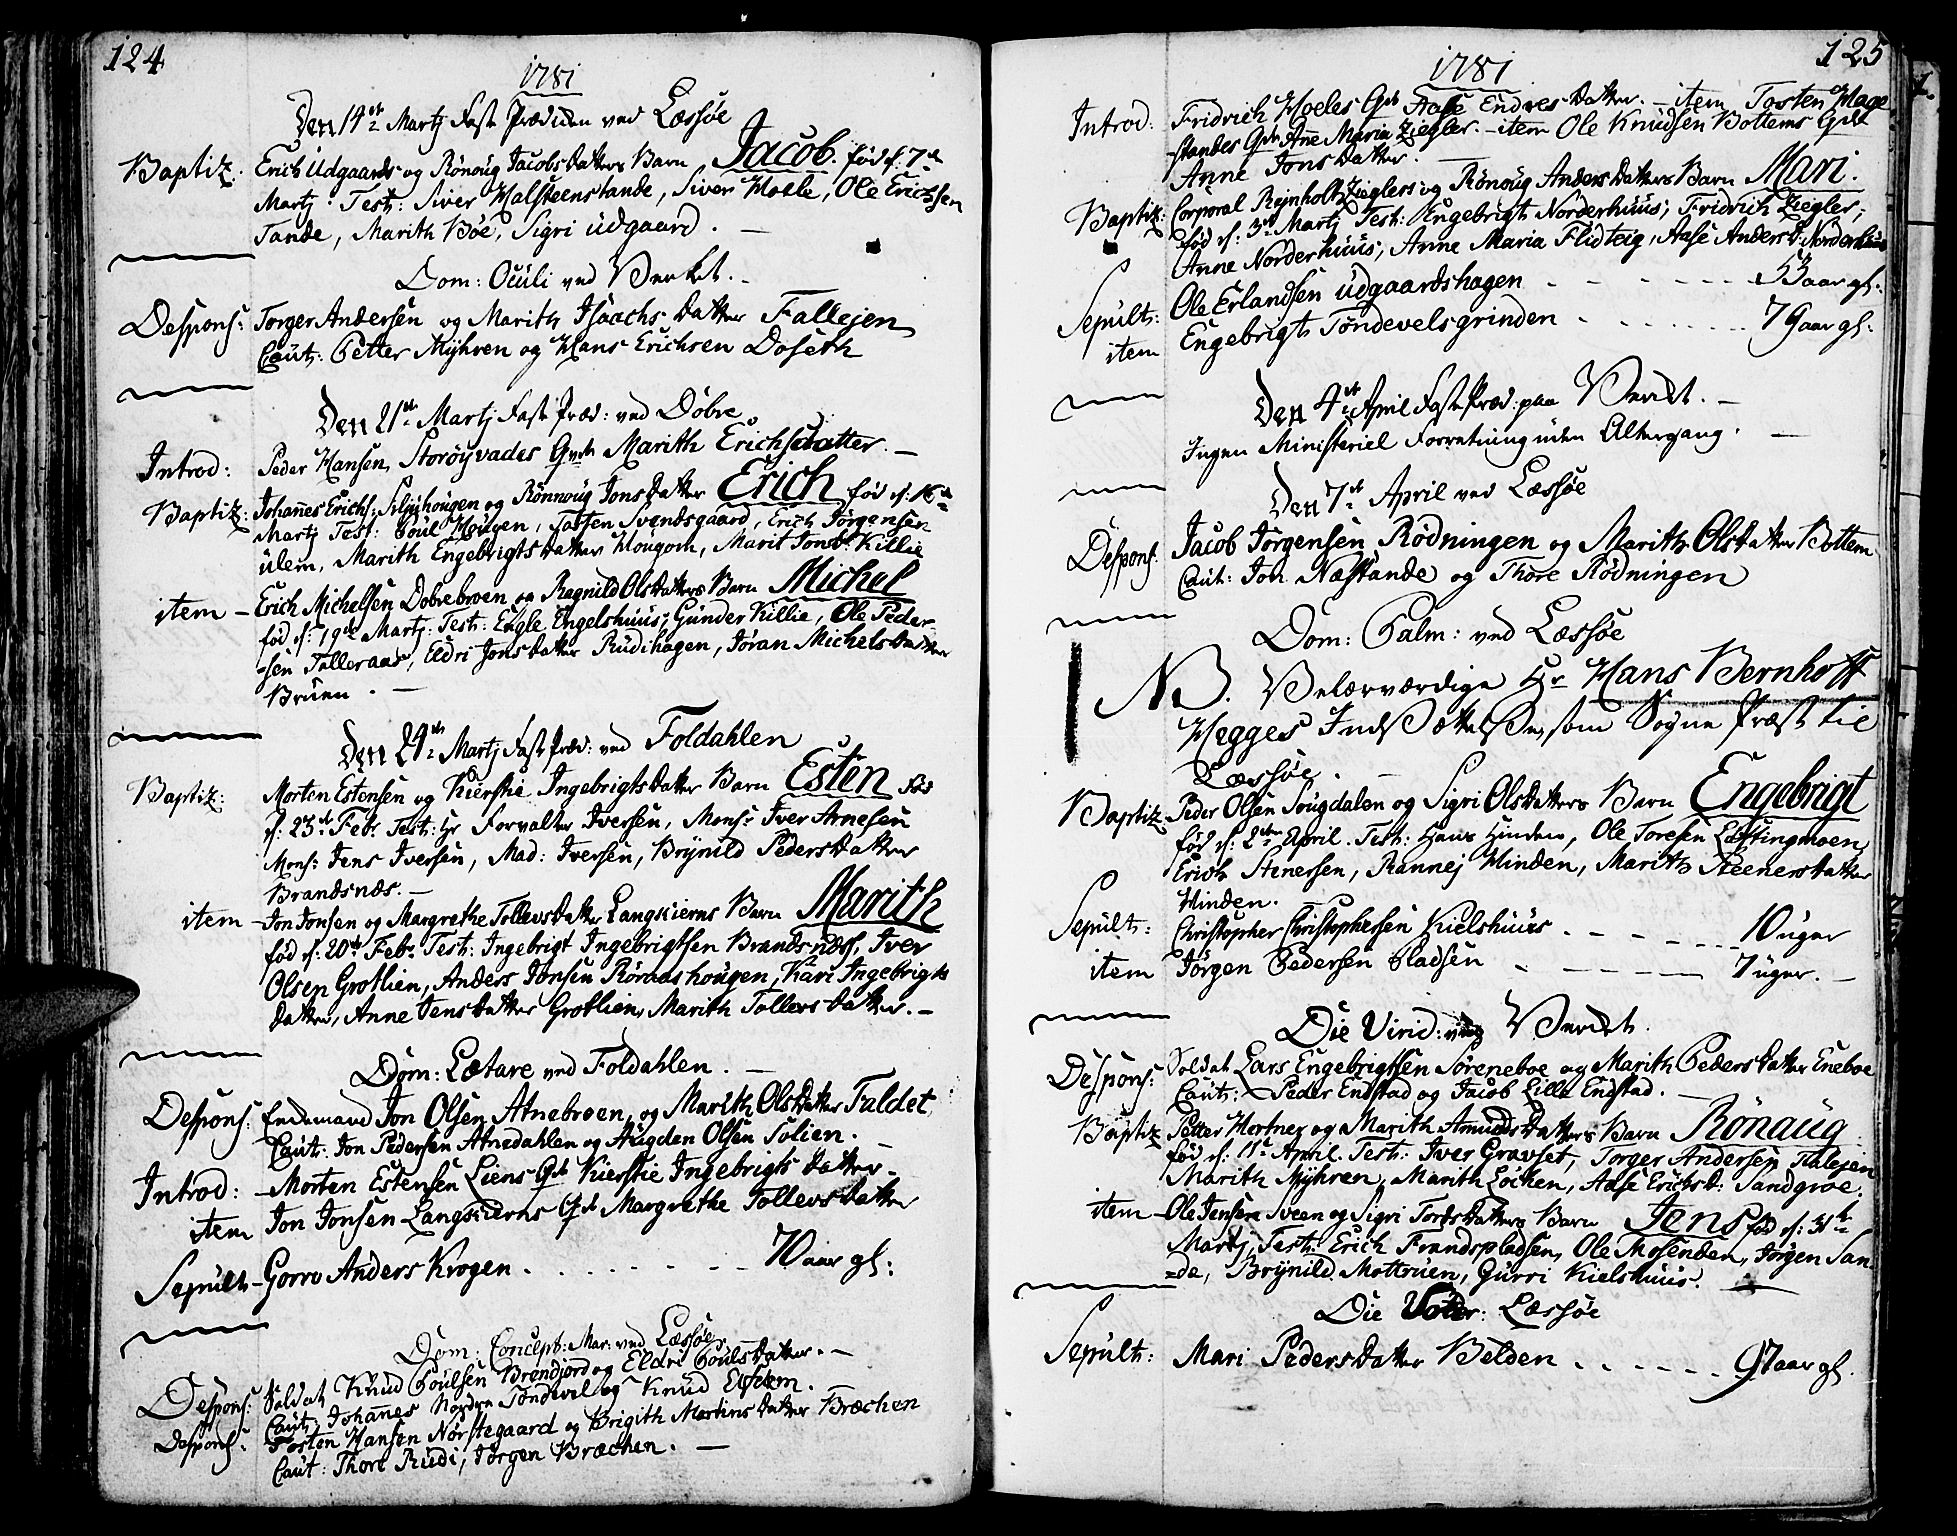 124
1781
Den 14de Martj Fast Prædiken ved Læssøe
Baptiz: Erich Udgaards og Rönoug Jacobsdatters Barn Jacob. fød d: 7de
Martj. Test: Siver Halsteenstande, Siver Moele, Ole Erichsen
Tande, Marith Böe, Sigri Udgaard.
Dom: Oculi ved Verket.
Despons: Torger Andersen og Marith Isaachs datter Fallejen
Caut: Petter Myhren og Hans Erichsen Doseth
Den 21de Martj Fast Præd: ved Dobre
Introd: Peder Hansen Storöyvades Qvde Marith Erichsdatter.
Baptiz: Johannes Erichs: hougen og Rönnoug Jonsdatter Erich fød d: 16de
Martj Test: Poul Hougen, Tosten Svendsgaard, Erich Jörgensen
Ulem, Marith Engebrigtsdatter Hougom, Marit Jonsd: Killie
item Erich Michelsen Dobrebroen og Ragnild Olsdatters Barn Michel
fød d: 19de Martj: Test: Engle Engelshuus, Gunder Killie, Ole Peder
sen Talleraas, Eldri Jonsdatter Rudihagen, Jöran Michelsdatter
Bruen.
Den 29de Martj Fast Præd: ved Foldahlen
Baptiz: Morten Estensen og Kierstie Ingebrigtsdatter Barn Esten fød
d: 23de Febr. Test: Hr Forvalter Iversen, Mons: Iver Arnesen
Mons: Jens Iversen, Mad: Iversen, Brynild Pedersdatter
Brandsnæs.
item Jon Jonsen og Margrethe Tollevsdatter Langskierns Barn Marith
fød d: 20de Febr. Test: Ingebrigt Ingebrigtsen Brandsnæs, Iver
Olsen Grotlien, Anders Jonsen Röraashougen, Kari Ingebrigts
datter, Anne Jensdatter Grotlien, Marith Tollevsdatter.
Dom: Lætare ved Foldahlen.
Despons: Enkemand Jon Olsen Atnebroen, og Marith Olsdatter Faldet
Caut: Jon Pedersen Atnedahlen og Augden Olsen Solien.
Introd: Morten Estensen Liens Qde Kierstie Ingebrigtsdatter
item Jon Jonsen Langskierns Qde Margrethe Tollevsdatter
Sepult Gorro Anders Krogen 70 aar gl:
Dom: Concept: Mar: ved Læssøe
Despons: Soldat Knud Poulsen Brendjord og Eldri Poulsdatter.
Caut: Johannes Nordre Töndevel og Knud Elstem.
Despons: Tosten Hansen Norstegaard og Brigith Mortensdatter Bræchen
Caut: Thore Rudi, Jörgen Bræchen.
125
1781
Introd: Fridrich Hoeles Qde Aase Endresdatter. item Tosten Hage
standes Qde Anne Maria Ziegler. item Ole Knudsen Bottems Qde
Anne Jonsdatter.
Baptiz: Corporal Rejnholt Zieglers og Rönoug Andersdatters Barn Mari.
fød d: 3de Martj Test: Engebrigt Norderhuus, Fridrich Ziegler,
Anne Norderhuus, Anne Maria Flidteig, Aase Andersd: Norderhuus
Sepult: Ole Erlandsen Udgaardshagen 53 aar gl:
item Engebrigt Töndevelsgrinden 79 aar gl:
Den 4de April Fast Præd: paa Verket.
Ingen Ministeriel Forretning uden Altergang.
Den 7de April ved Læssøe
Despons: Jacob Jörgensen Rödningen og Marith Olsdatter Bottem
Caut: Jon Næstande og Thore Rödningen
Dom: Palm: ved Læssøe
NB. Velærværdige Hr Hans Bernhoft
Hegges Indsættelse, som Sogne Præst til
Læssøe.
Baptiz Peder Olsen Sougdalen og Sigri Olsdatters Barn Engebrigt
fød d: 2de April. Test: Hans Hinden, Ole Toresen Læstingmoen
Erich Stenersen, Rannej Hinden, Marith Steenersdatter
Hinden.
Sepult: Christopher Christophersen Kielshuus 10 uger
item Jörgen Pedersen Pladsen 7 uger.
Die Virid: ved Verket.
Despons: Soldat Lars Engebrigtsen Söreneboe og Marith Pedersdatter Eneboe
Caut: Peder Endstad og Jacob Lille Endstad.
Baptiz Petter Hortnes og Marith Amundsdatters Barn Rönaug
fød d: 11te April. Test: Iver Gravset, Torger Andersen Falejen
Marith Myhren, Marith Löchen, Aase Erichsd: Sandgroe.
item Ole Jensen Sveen og Sigri Tordsdatters Barn Jens fød d: 31te
Martj, Test: Erich Frandspladsen, Ole Mosenden, Jörgen San
de, Brynild Mottruen, Gurri Kielshuus.
Die Læssøe
Sepult: Mari Pedersdatter Belden 97 aar gl.